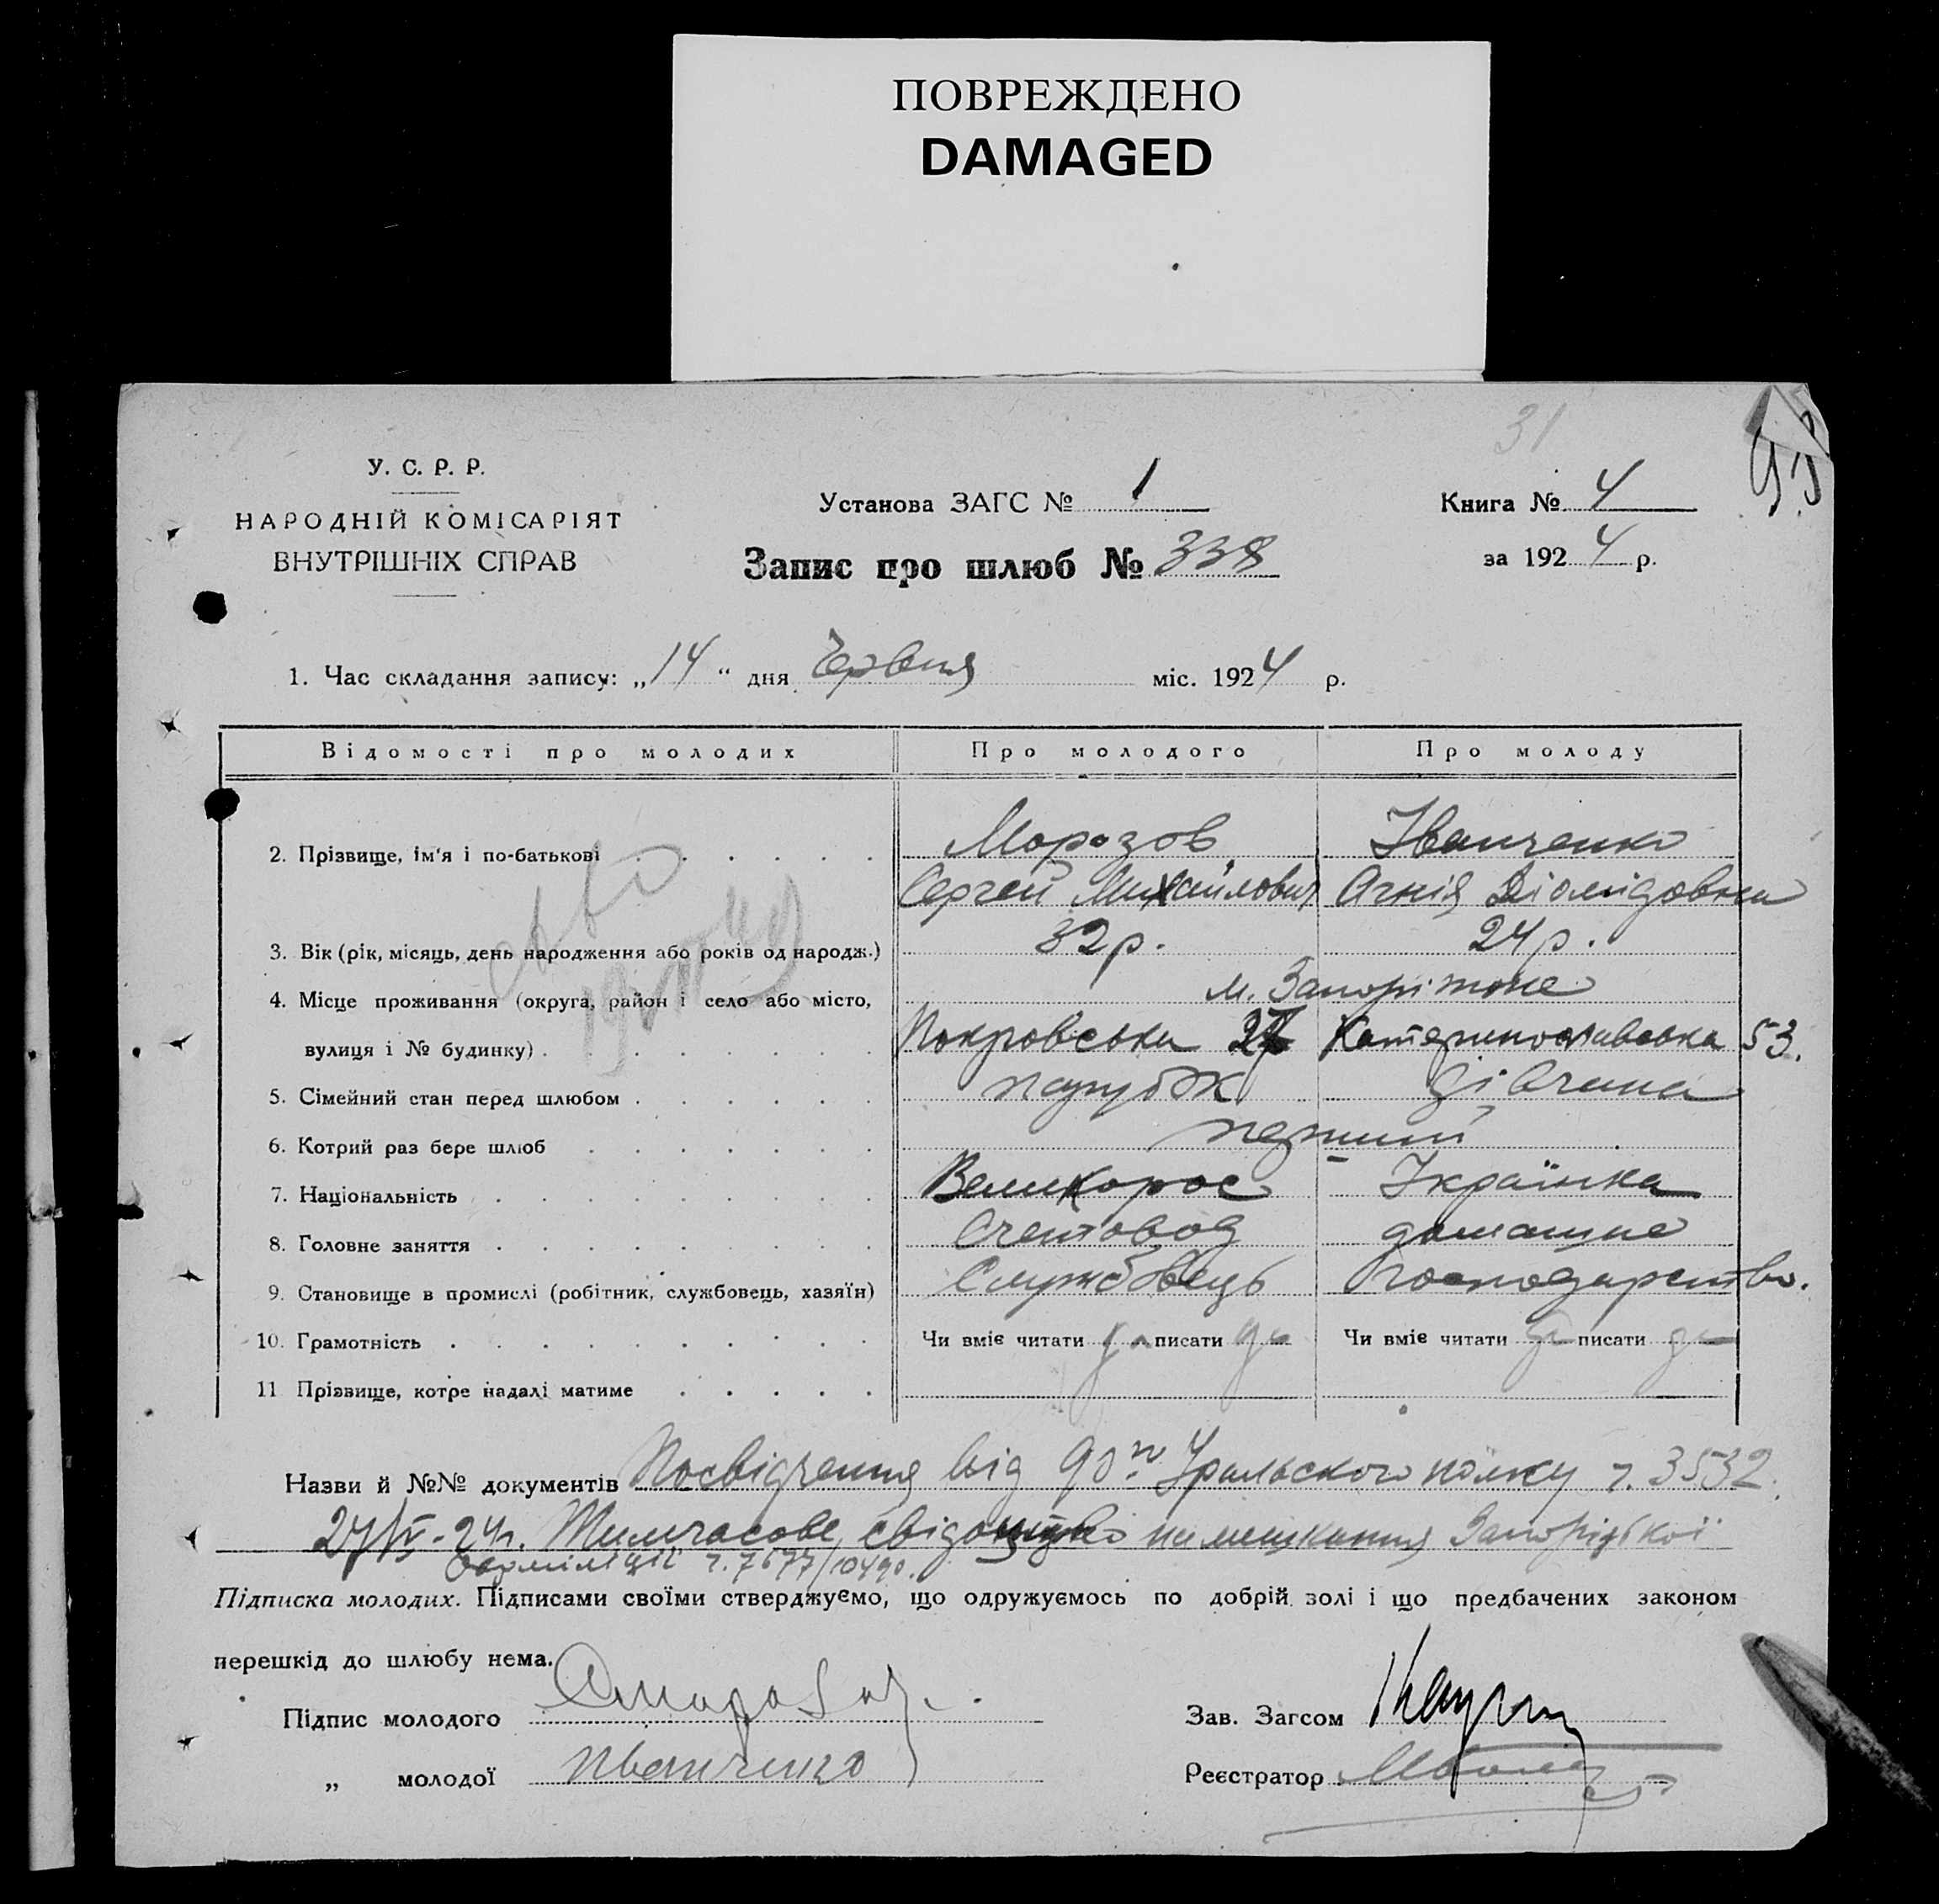 ПОВРЕЖДЕНО
DAMAGED
31
У. С. Р. Р.
НАРОДНІЙ КОМІСАРІЯТ
ВНУТРІШНІХ СПРАВ
Установа ЗАГС № 1
Книга № 4
Запис про шлюб № 338
за 1924 р.
1. Час складання запису: „14“ дня Червня міс. 1924 р.
Відомості про молодих Про молодого Про молоду
2. Прізвище, ім'я і по-батькові Морозов Іванченко
Сергей Михайлович Агнія Діомідовна
3. Вік (рік, місяць, день народження або років од народж.) 32 р. 24 р.
4. Місце проживання (округа, район і село або місто, м. Запоріжжє
вулиця і № будинку) Покровська 27 Катеринославська 53.
5. Сімейний стан перед шлюбом парубок дівчина
6. Котрий раз бере шлюб перший
7. Національність Великорос Українка
8. Головне заняття Счетовод домашнє
9. Становище в промислі (робітник, службовець, хазяїн) Службовець господарство.
10. Грамотність Чи вміє читати да писати да Чи вміє читати да писати да
11 Прізвище, котре надалі матиме
Назви й №№ документів Посвідчення від 90го Уральского полку ч. 3532
27/V-24р. Тимчасове свідоцтво помешкання Запорізької
ч. 7677/10490.
Підписка молодих. Підписами своїми стверджуємо, що одружуємось по добрій золі і що предбачених законом
перешкід до шлюбу нема.
Підпис молодого СМорозов Зав. Загсом
„ молодої Иванченко Реєстратор